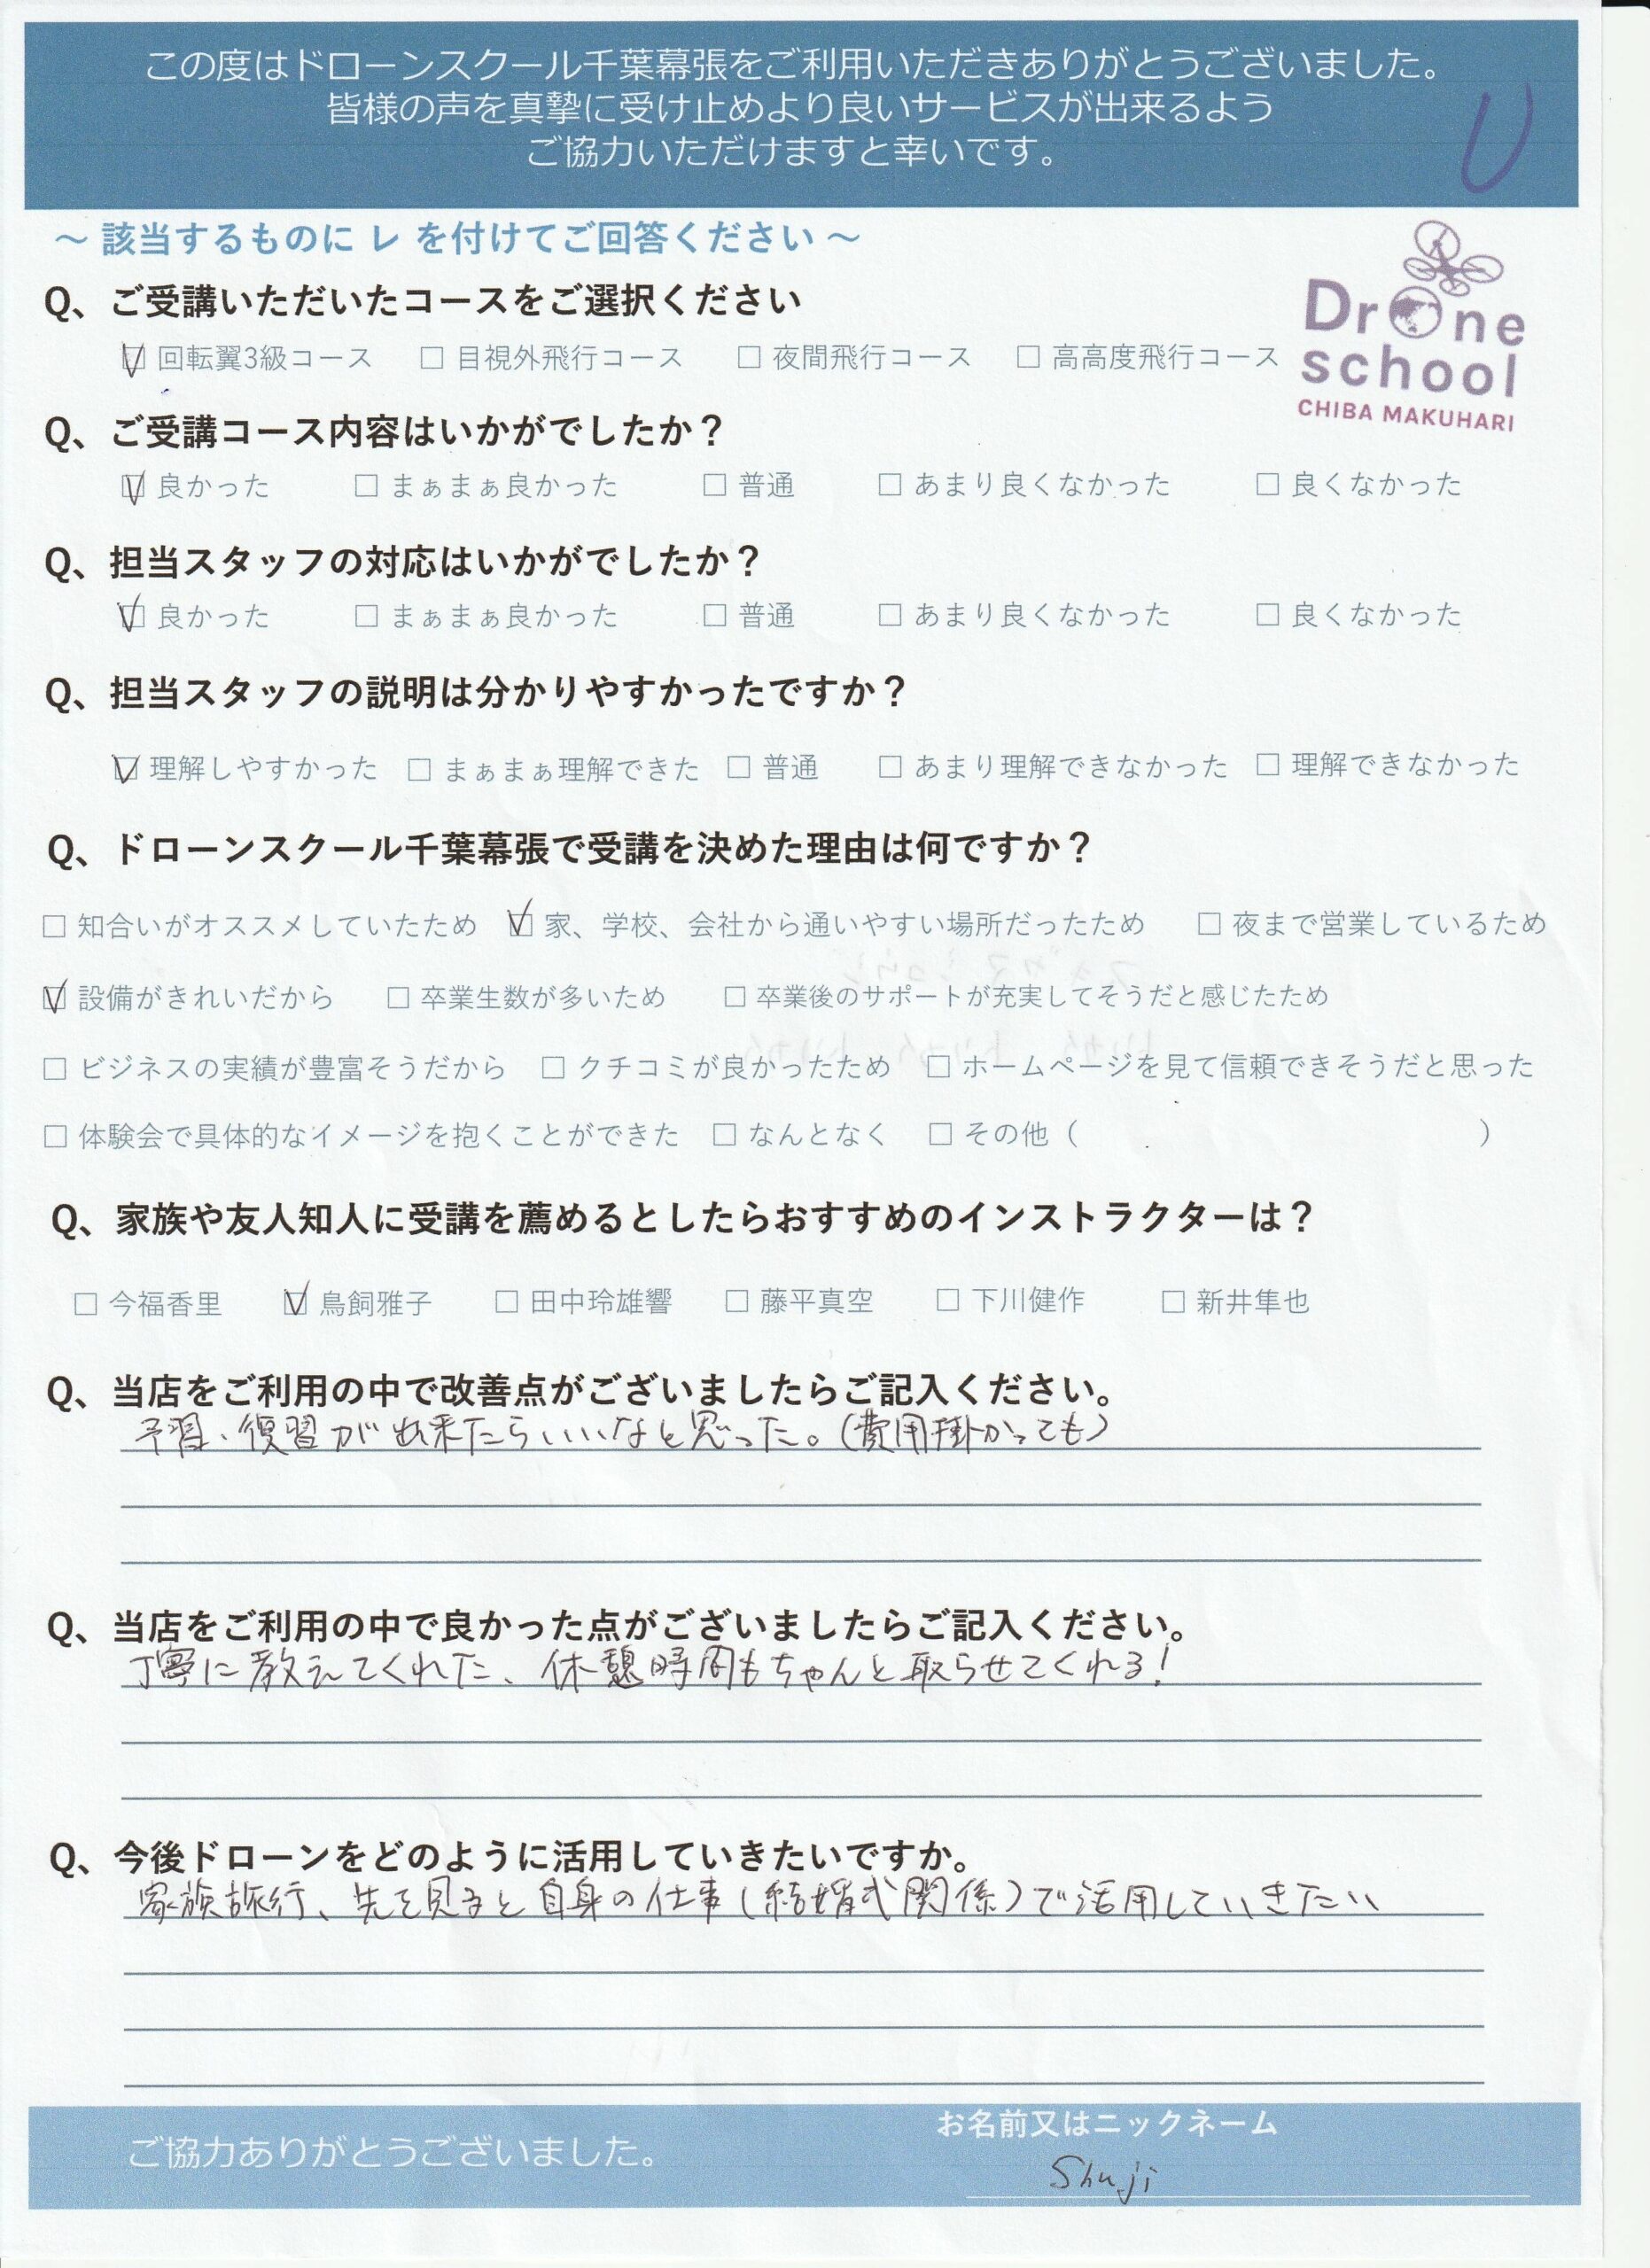 この度はドローンスクール千葉幕張をご利用いただきありがとうございました。
皆様の声を真摯に受け止めより良いサービスが出来るよう
ご協力いただけますと幸いです。
～ 該当するものに レ を付けてご回答ください ～
Drone
school
CHIBA MAKUHARI
Q、ご受講いただいたコースをご選択ください
☑ 回転翼3級コース □ 目視外飛行コース □ 夜間飛行コース □ 高高度飛行コース
Q、ご受講コース内容はいかがでしたか？
☑ 良かった □ まぁまぁ良かった □ 普通 □ あまり良くなかった □ 良くなかった
Q、担当スタッフの対応はいかがでしたか？
☑ 良かった □ まぁまぁ良かった □ 普通 □ あまり良くなかった □ 良くなかった
Q、担当スタッフの説明は分かりやすかったですか？
☑ 理解しやすかった □ まぁまぁ理解できた □ 普通 □ あまり理解できなかった □ 理解できなかった
Q、ドローンスクール千葉幕張で受講を決めた理由は何ですか？
□ 知合いがオススメしていたため ☑ 家、学校、会社から通いやすい場所だったため □ 夜まで営業しているため
☑ 設備がきれいだから □ 卒業生数が多いため □ 卒業後のサポートが充実してそうだと感じたため
□ ビジネスの実績が豊富そうだから □ クチコミが良かったため □ ホームページを見て信頼できそうだと思った
□ 体験会で具体的なイメージを抱くことができた □ なんとなく □ その他（ ）
Q、家族や友人知人に受講を薦めるとしたらおすすめのインストラクターは？
□ 今福香里 ☑ 鳥飼雅子 □ 田中玲雄響 □ 藤平真空 □ 下川健作 □ 新井隼也
Q、当店をご利用の中で改善点がございましたらご記入ください。
予習、復習が出来たらいいなと思った。(費用掛かっても)
Q、当店をご利用の中で良かった点がございましたらご記入ください。
丁寧に教えてくれた、休憩時間もちゃんと取らせてくれる!
Q、今後ドローンをどのように活用していきたいですか。
家族旅行、先を見ると自身の仕事(結婚式関係)で活用していきたい
ご協力ありがとうございました。
お名前又はニックネーム
Shuji